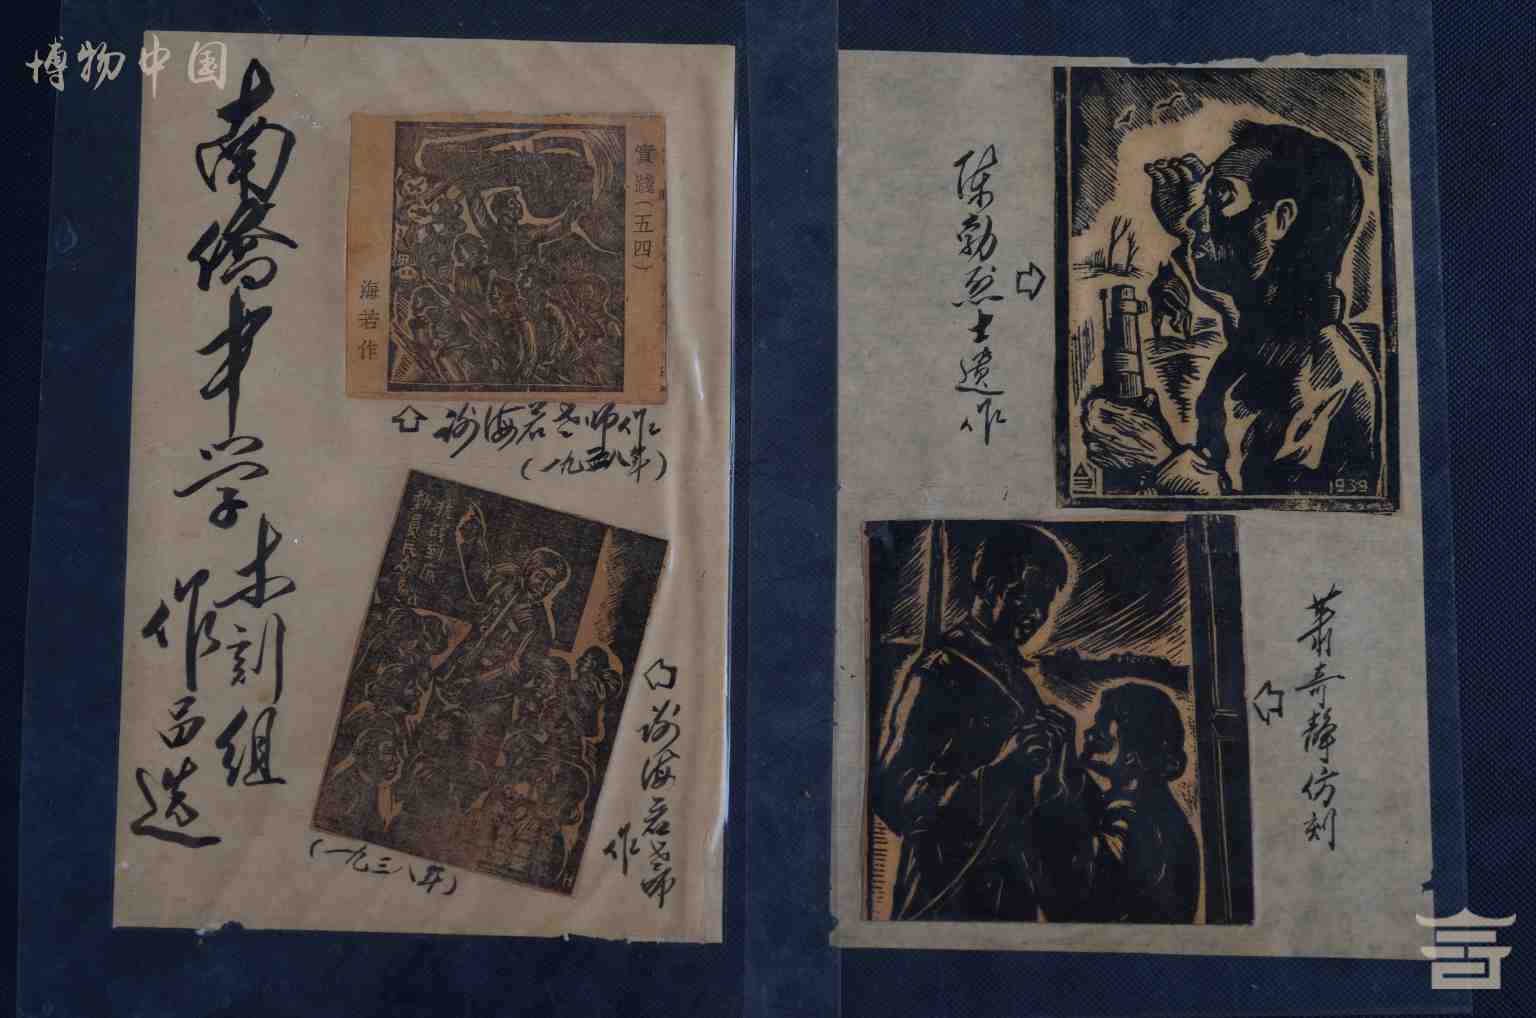 博物中国
南侨中学木刻组
作品选
實踐(五四)
海若作
谢海若老师作
(一九五八年)
谢海若老师
作
(一九三八年)
陈勃烈士遗作
1939
萧奇静仿刻